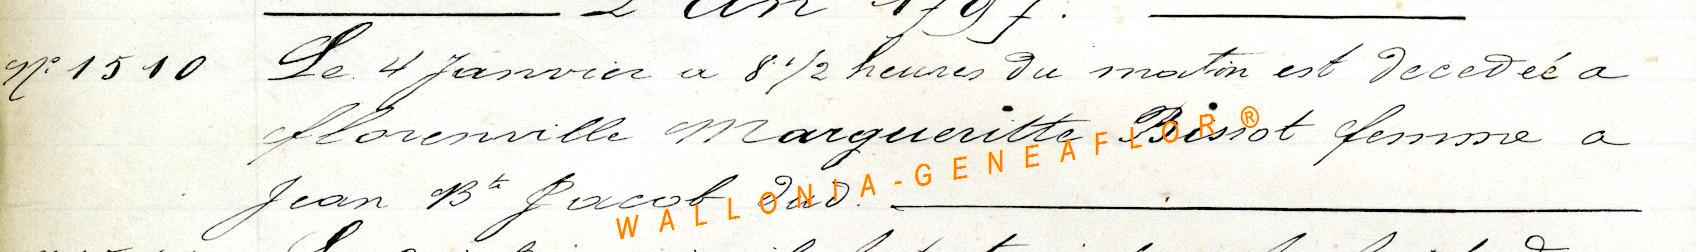 L'an 1797.
N° 1510 Le 4 Janvier a 8 1/2 heures du matin est decedeé a
florenville Margueritte Bissot femme a
Jean Bte Jacob dud.
WALLONIA-GENEAFLOR®